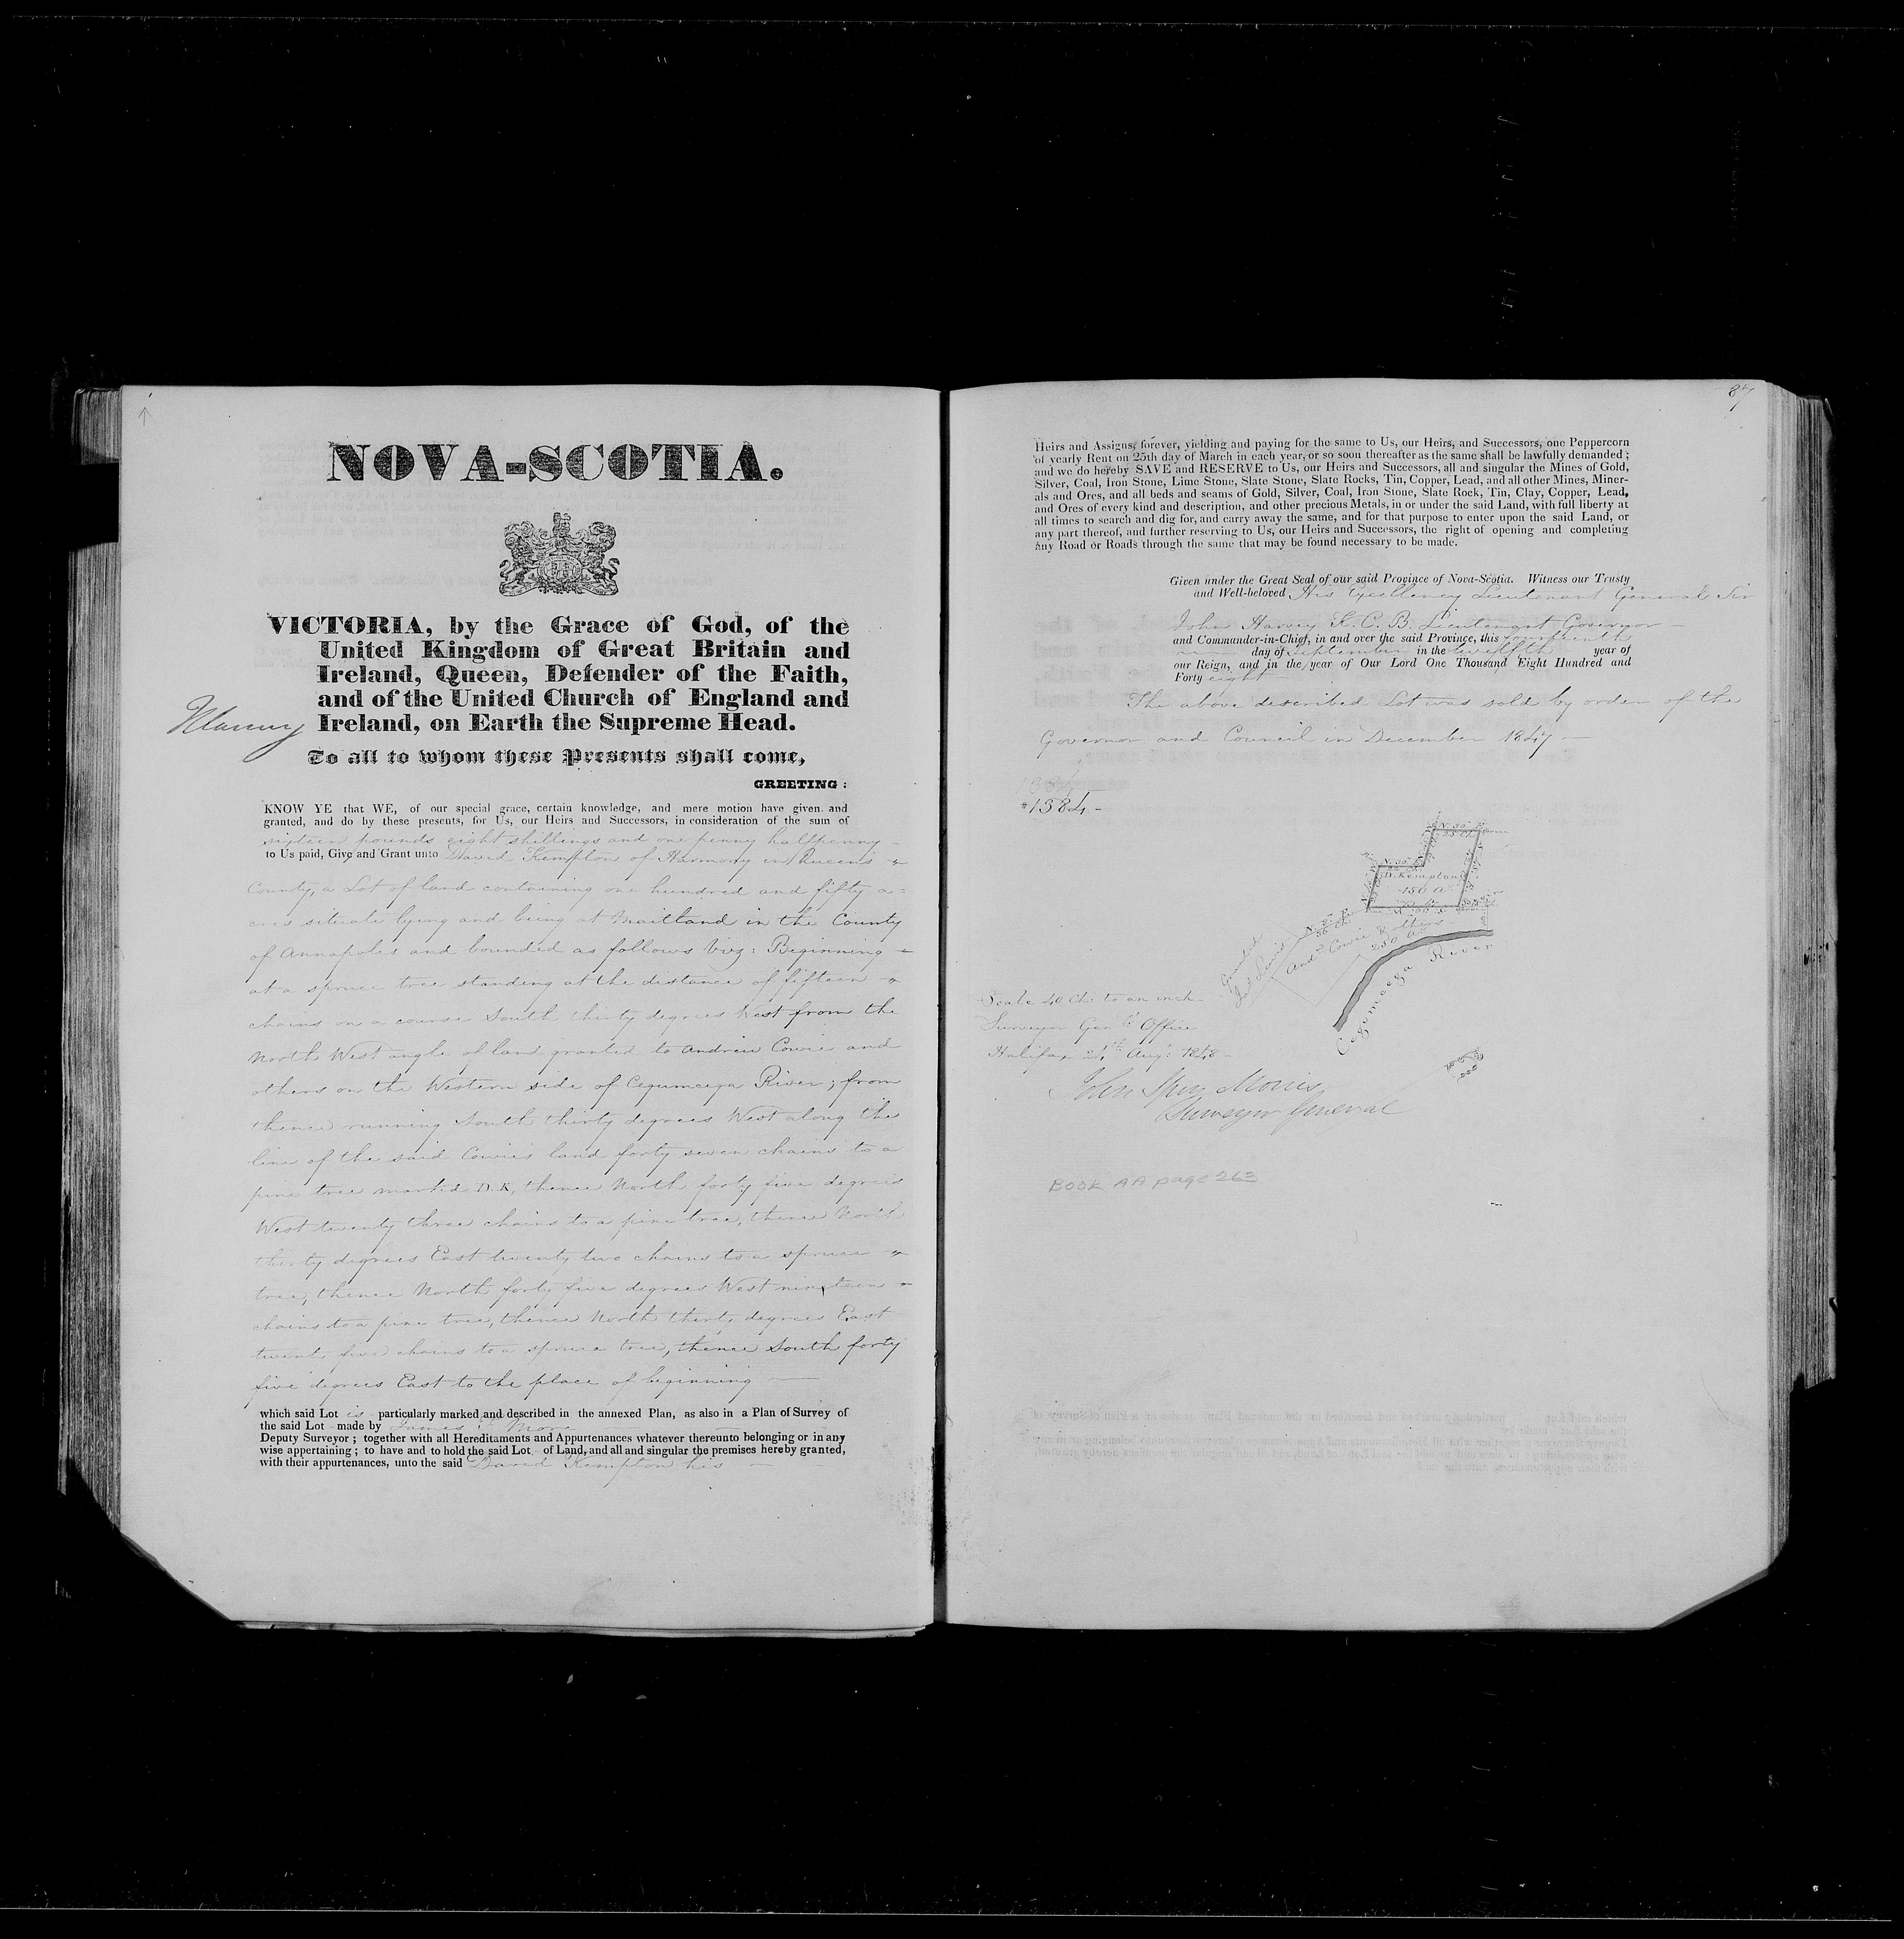 NOVA-SCOTIA.
VICTORIA, by the Grace of God, of the
United Kingdom of Great Britain and
Ireland, Queen, Defender of the Faith,
and of the United Church of England and
Ireland, on Earth the Supreme Head.
To all to whom these Presents shall come,
GREETING:
KNOW YE that WE, of our special grace, certain knowledge, and mere motion have given and
granted, and do by these presents, for Us, our Heirs and Successors, in consideration of the sum of
sixteen pounds eight shillings and one penny halfpenny
to Us paid, Give and Grant unto David Kempton of Harmony in Queen's
County, a Lot of land containing one hundred and fifty a=
cres situate lying and being at Maitland in the County
of Annapolis and bounded as follows Viz: Beginning
at a spruce tree standing at the distance of fifteen
chains on a course South thirty degrees West from the
North West angle of land granted to Andrew Cowie and
others on the Western side of Cegumcega River; from
thence running South thirty degrees West along the
line of the said Cowie's land forty seven chains to a
pine tree marked D.K, thence North forty five degrees
West twenty three chains to a pine tree, thence North
thirty degrees East twenty two chains to a spruce
tree, thence North forty five degrees West nineteen
chains to a pine tree, thence North thirty degrees East
twenty five chains to a spruce tree, thence South forty
five degrees East to the place of beginning
which said Lot is particularly marked and described in the annexed Plan, as also in a Plan of Survey of
the said Lot made by James
Deputy Surveyor; together with all Hereditaments and Appurtenances whatever thereunto belonging or in any
wise appertaining; to have and to hold the said Lot of Land, and all and singular the premises hereby granted,
with their appurtenances, unto the said David Kempton his
87
Heirs and Assigns, forever, yielding and paying for the same to Us, our Heirs, and Successors, one Peppercorn
of yearly Rent on 25th day of March in each year, or so soon thereafter as the same shall be lawfully demanded;
and we do hereby SAVE and RESERVE to Us, our Heirs and Successors, all and singular the Mines of Gold,
Silver, Coal, Iron Stone, Lime Stone, Slate Stone, Slate Rocks, Tin, Copper, Lead, and all other Mines, Miner-
als and Ores, and all beds and seams of Gold, Silver, Coal, Iron Stone, Slate Rock, Tin, Clay, Copper, Lead,
and Ores of every kind and description, and other precious Metals, in or under the said Land, with full liberty at
all times to search and dig for, and carry away the same, and for that purpose to enter upon the said Land, or
any part thereof, and further reserving to Us, our Heirs and Successors, the right of opening and completing
any Road or Roads through the same that may be found necessary to be made.
Given under the Great Seal of our said Province of Nova-Scotia. Witness our Trusty
and Well-beloved His Excellency Lieutenant General Sir
John Harvey K.C.B. Lieutenant Governor
and Commander-in-Chief, in and over the said Province, this fourteenth
day of September in the twelfth year of
our Reign, and in the year of Our Lord One Thousand Eight Hundred and
Forty eight
The above described Lot was sold by order of the
Governor and Council in December 1847
1384
#1384
D. Kempton
150 a
Andw Cowie & others
250 a
Granted
Cegumcega River
Scale 40 Ch. to an inch
Surveyor Genls Office
Halifax 24th Augt 1848
John Spry Morris
Surveyor General
BOOK AA page 263